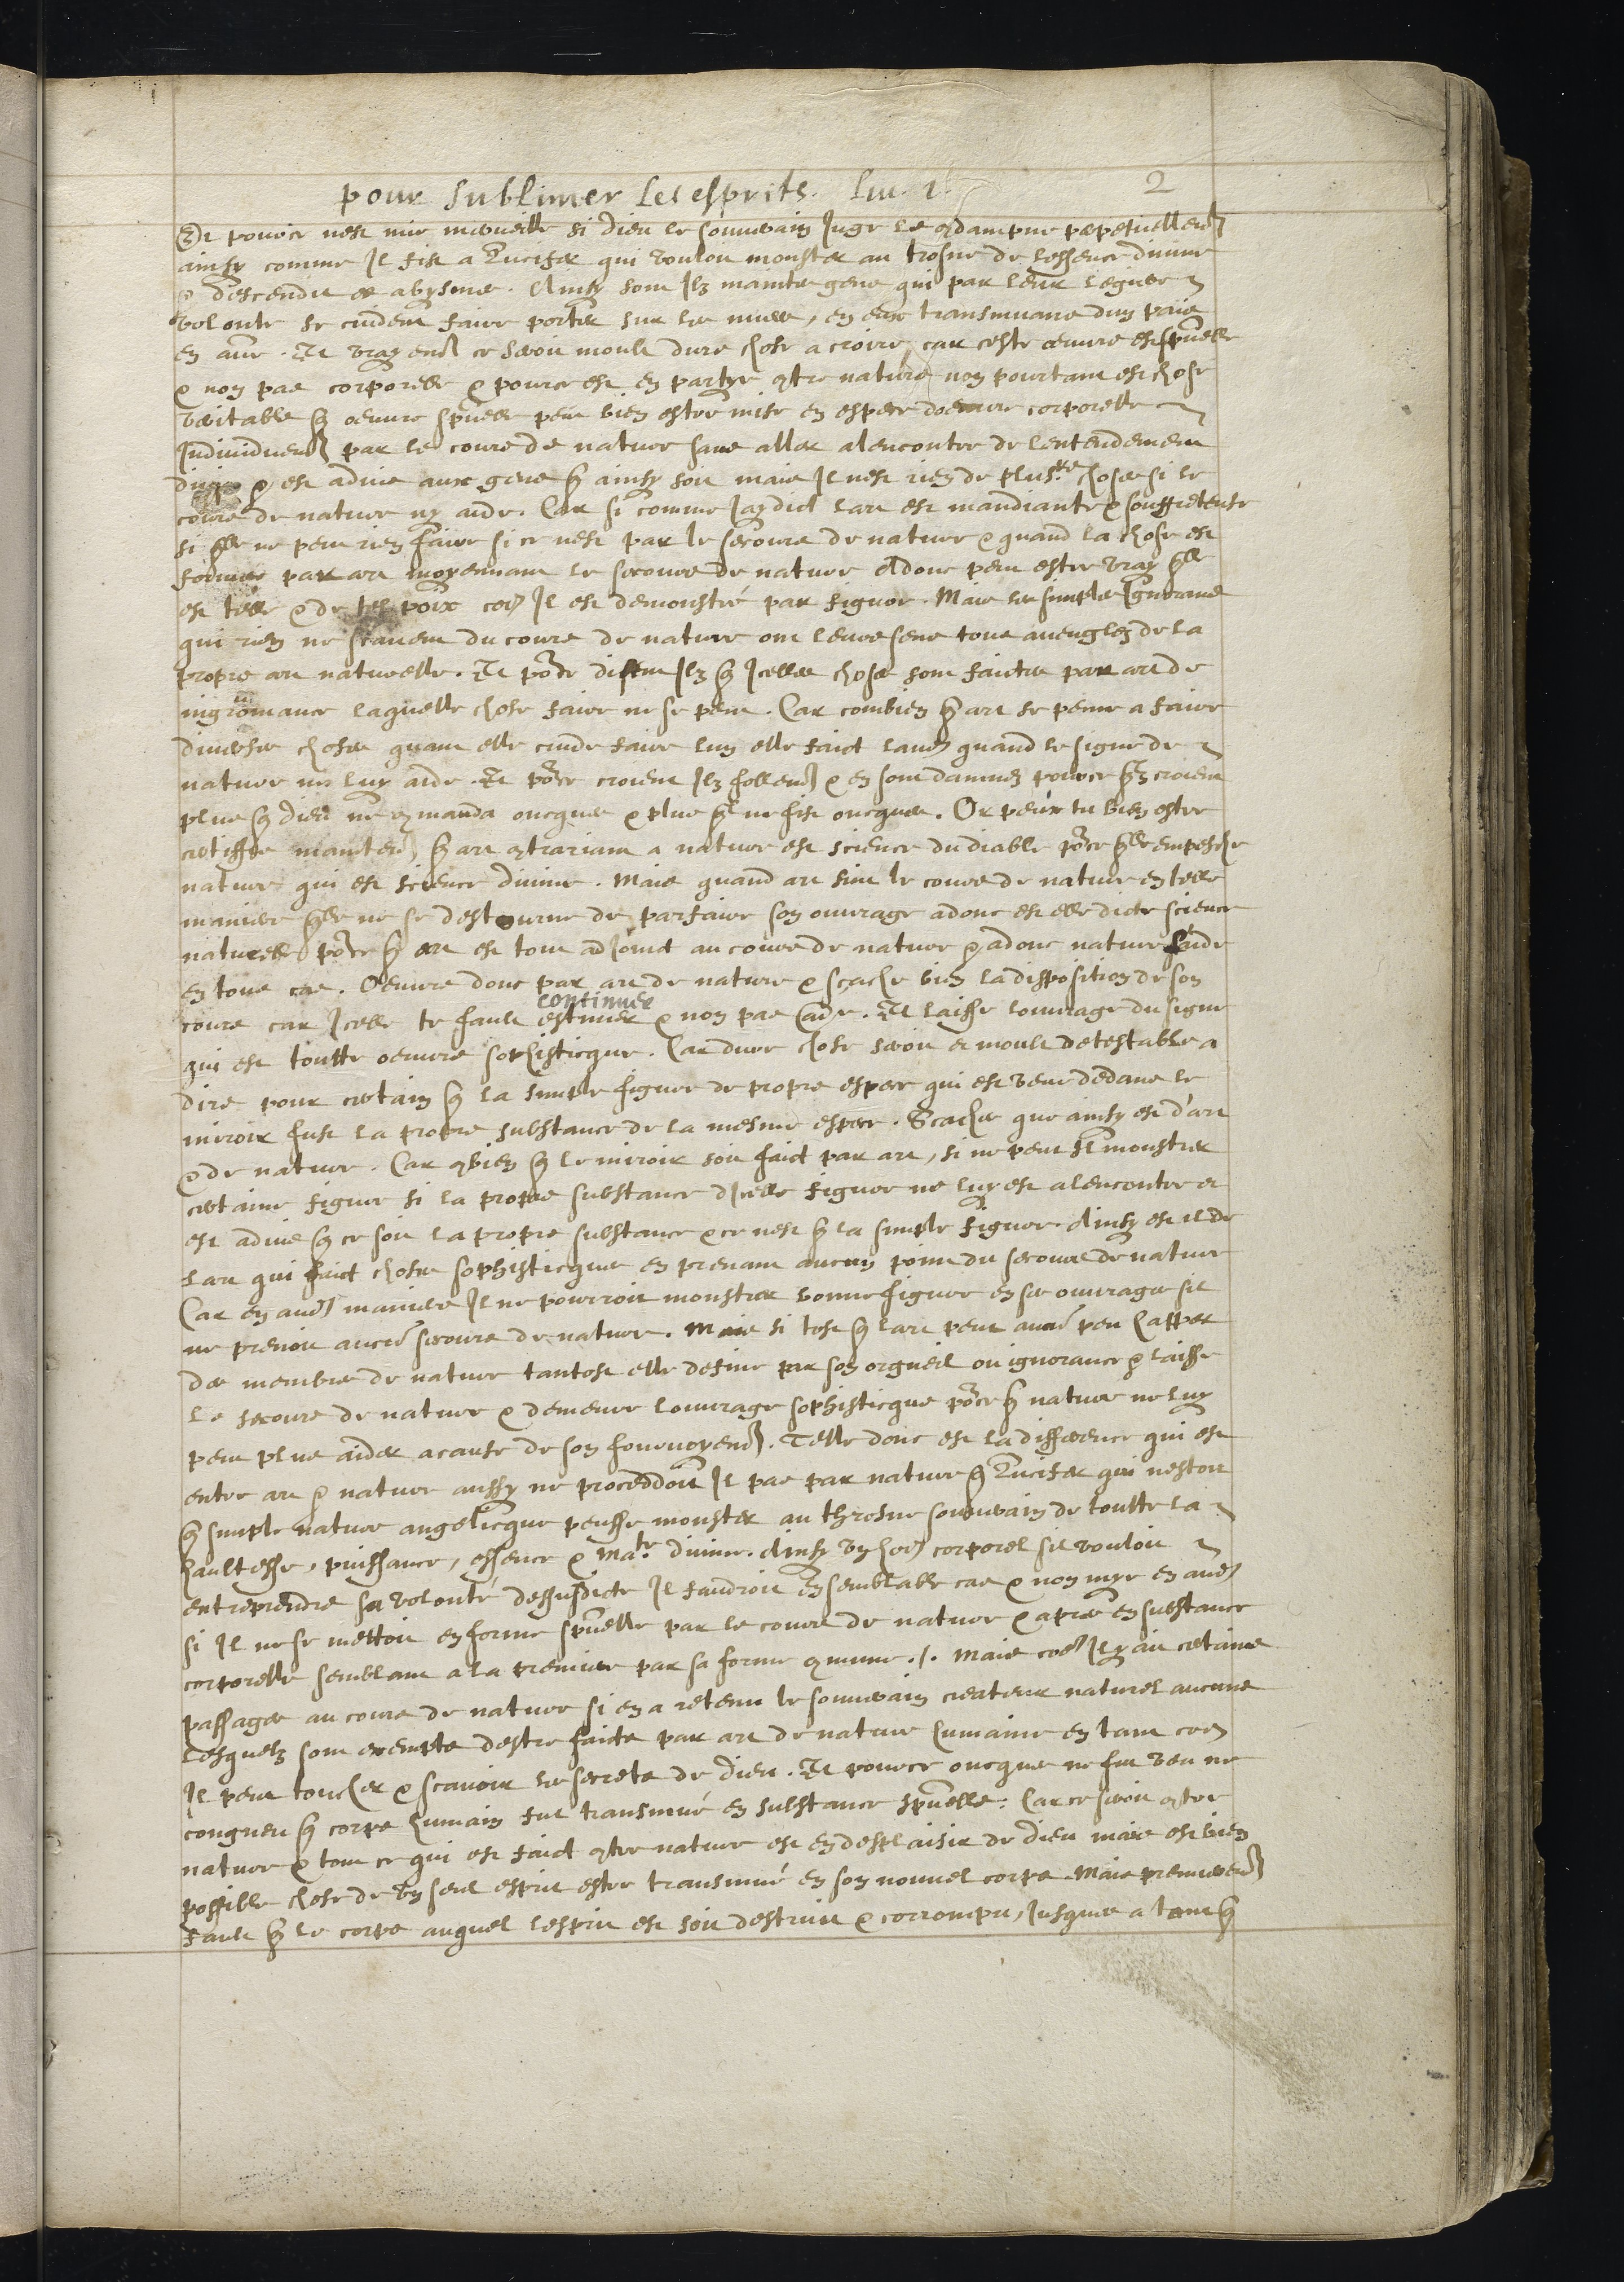 pour sublimer les esprits. liu. 1.
2
Et pource nest mie merueille si dieu le souuerain Juge le condampne perpetuellement
ainsy comme Il fist a Lucifer qui voulou monster au trosne de lessence diuine
& descendu es abysmes. Ainsy sont Ilz maintes gens qui par leur legiere
volonte se cuident faire porter sur les nuees, en eux transmuans dun pais
en autre. Et vrayement ce seroit moult dure chose a croire, car ceste oeuure est spũelle
& non pas corporelle & pource est en partye contre nature non pourtant est chose
veritable que oeuure spũelle peut bien estre mise en espece doeuure corporelle
Indiuiduement par le cours de nature sans aller alencontre de lentendement
diuin & est aduis aux gens que ainsy soit mais Il nest rien de plusrs choses si le
cours de nature ny aide. Car si comme Jay dict lart est mandiante & souffreteuse
si quelle ne peut rien faire si ce nest par le secours de nature & quand la chose est
formee par art moyennant le secours de nature Adonc peut estre vray quelle
est telle & de tel poix com̃e Il est demonstré par figure. Mais les simples Ignorans
qui rien ne scauent du cours de nature ont leurs sens tous aueuglez de la
propre art naturelle. Et põrce disent Ilz que Icelles choses sont faictes par art de
nigromance laquelle chose faire ne se peut. Car combien que art se peine a faire
diuerses choses quant elle cuide faire lun elle faict lautre quand le signe de
nature ne luy aide. Et põrce croient Ilz follement & en sont damnez pource quilz croient
plus que dieu ne commanda oncques & plus quil ne fist oncques. Or peux tu bien estre
certiffié maintenant que art contrariant a nature est science du diable põrce quelle empesche
nature qui est science diuine. Mais quand art suit le cours de nature en telle
maniere quelle ne se destourne de parfaire son ouurage adonc est elle dicte science
naturelle põrce que art est tout adjoinct au cours de nature & adonc nature laide
en tous cas. Oeuure donc par art de nature & scache bien la disposition de son
continuer
cours car Icelle te fault estimer & non pas laide. Et laisse louurage du signe
qui est toutte oeuure sophisticque. Car dure chose seroit et moult detestable a
dire pour certain que la simple figure de propre espece qui est veue dedans le
miroir fust la propre substance de la mesme espece. Scaches que ainsy est d'art
& de nature. Car combien que le miroir soit faict par art, si ne peut Il monstrer
certaine figure si la propre substance dicelle figure ne luy est alencontre et
est aduis que ce soit la propre substance & ce nest que la simple figure. Ainsy est il de
lart qui faict choses sophisticques en prenant aucun point du secours de nature
Car en autre maniere Il ne pourroit monstrer bonne figure en ses ouurages sil
ne prenoit aucun secours de nature. Mais si tost que lart peut aucun peu happer
des membres de nature tantost elle desuie par son orgueil ou ignorance & laisse
le secours de nature & demeure louurage sophisticque põrce que nature ne luy
peut plus aider acause de son fouruoyement. Telle donc est la difference qui est
entre art & nature aussy ne proceddoit Il pas par nature que Lucifer qui nestoit
que simple nature angelicque peusse monster au throsne souuerain de toutte la
haultesse, puissance, essence & Mate diuine. Ainsy vng homme corporel sil vouloit
entreprendre sa volonté dessusdicte Il faudroit en semblable cas & non mye en autre
si Il ne se mettoit en forme spũelle par le cours de nature & apres en substance
corporelle semblant a la premiere par sa forme commune ./. Mais com̃e Il y ait certaine
passages au cours de nature si en a retenu le souuerain createur naturel aucuns
lesquelz sont exempts destre faicts par art de nature humaine en tant com̃e
Il peut toucher & scauoir les secrets de dieu. Et pource oncques ne fut veu ne
congneu que corps humain fut transmué en substance spũelle. Car ce seroit contre
nature & tout ce qui est faict contre nature est en desplaisir de dieu mais est bien
possible chose de vng seul esprit estre transmué en son nouuel corps. Mais premierement
fault que le corps auquel lesprit est soit destruit & corrompu, Jusques a tant que